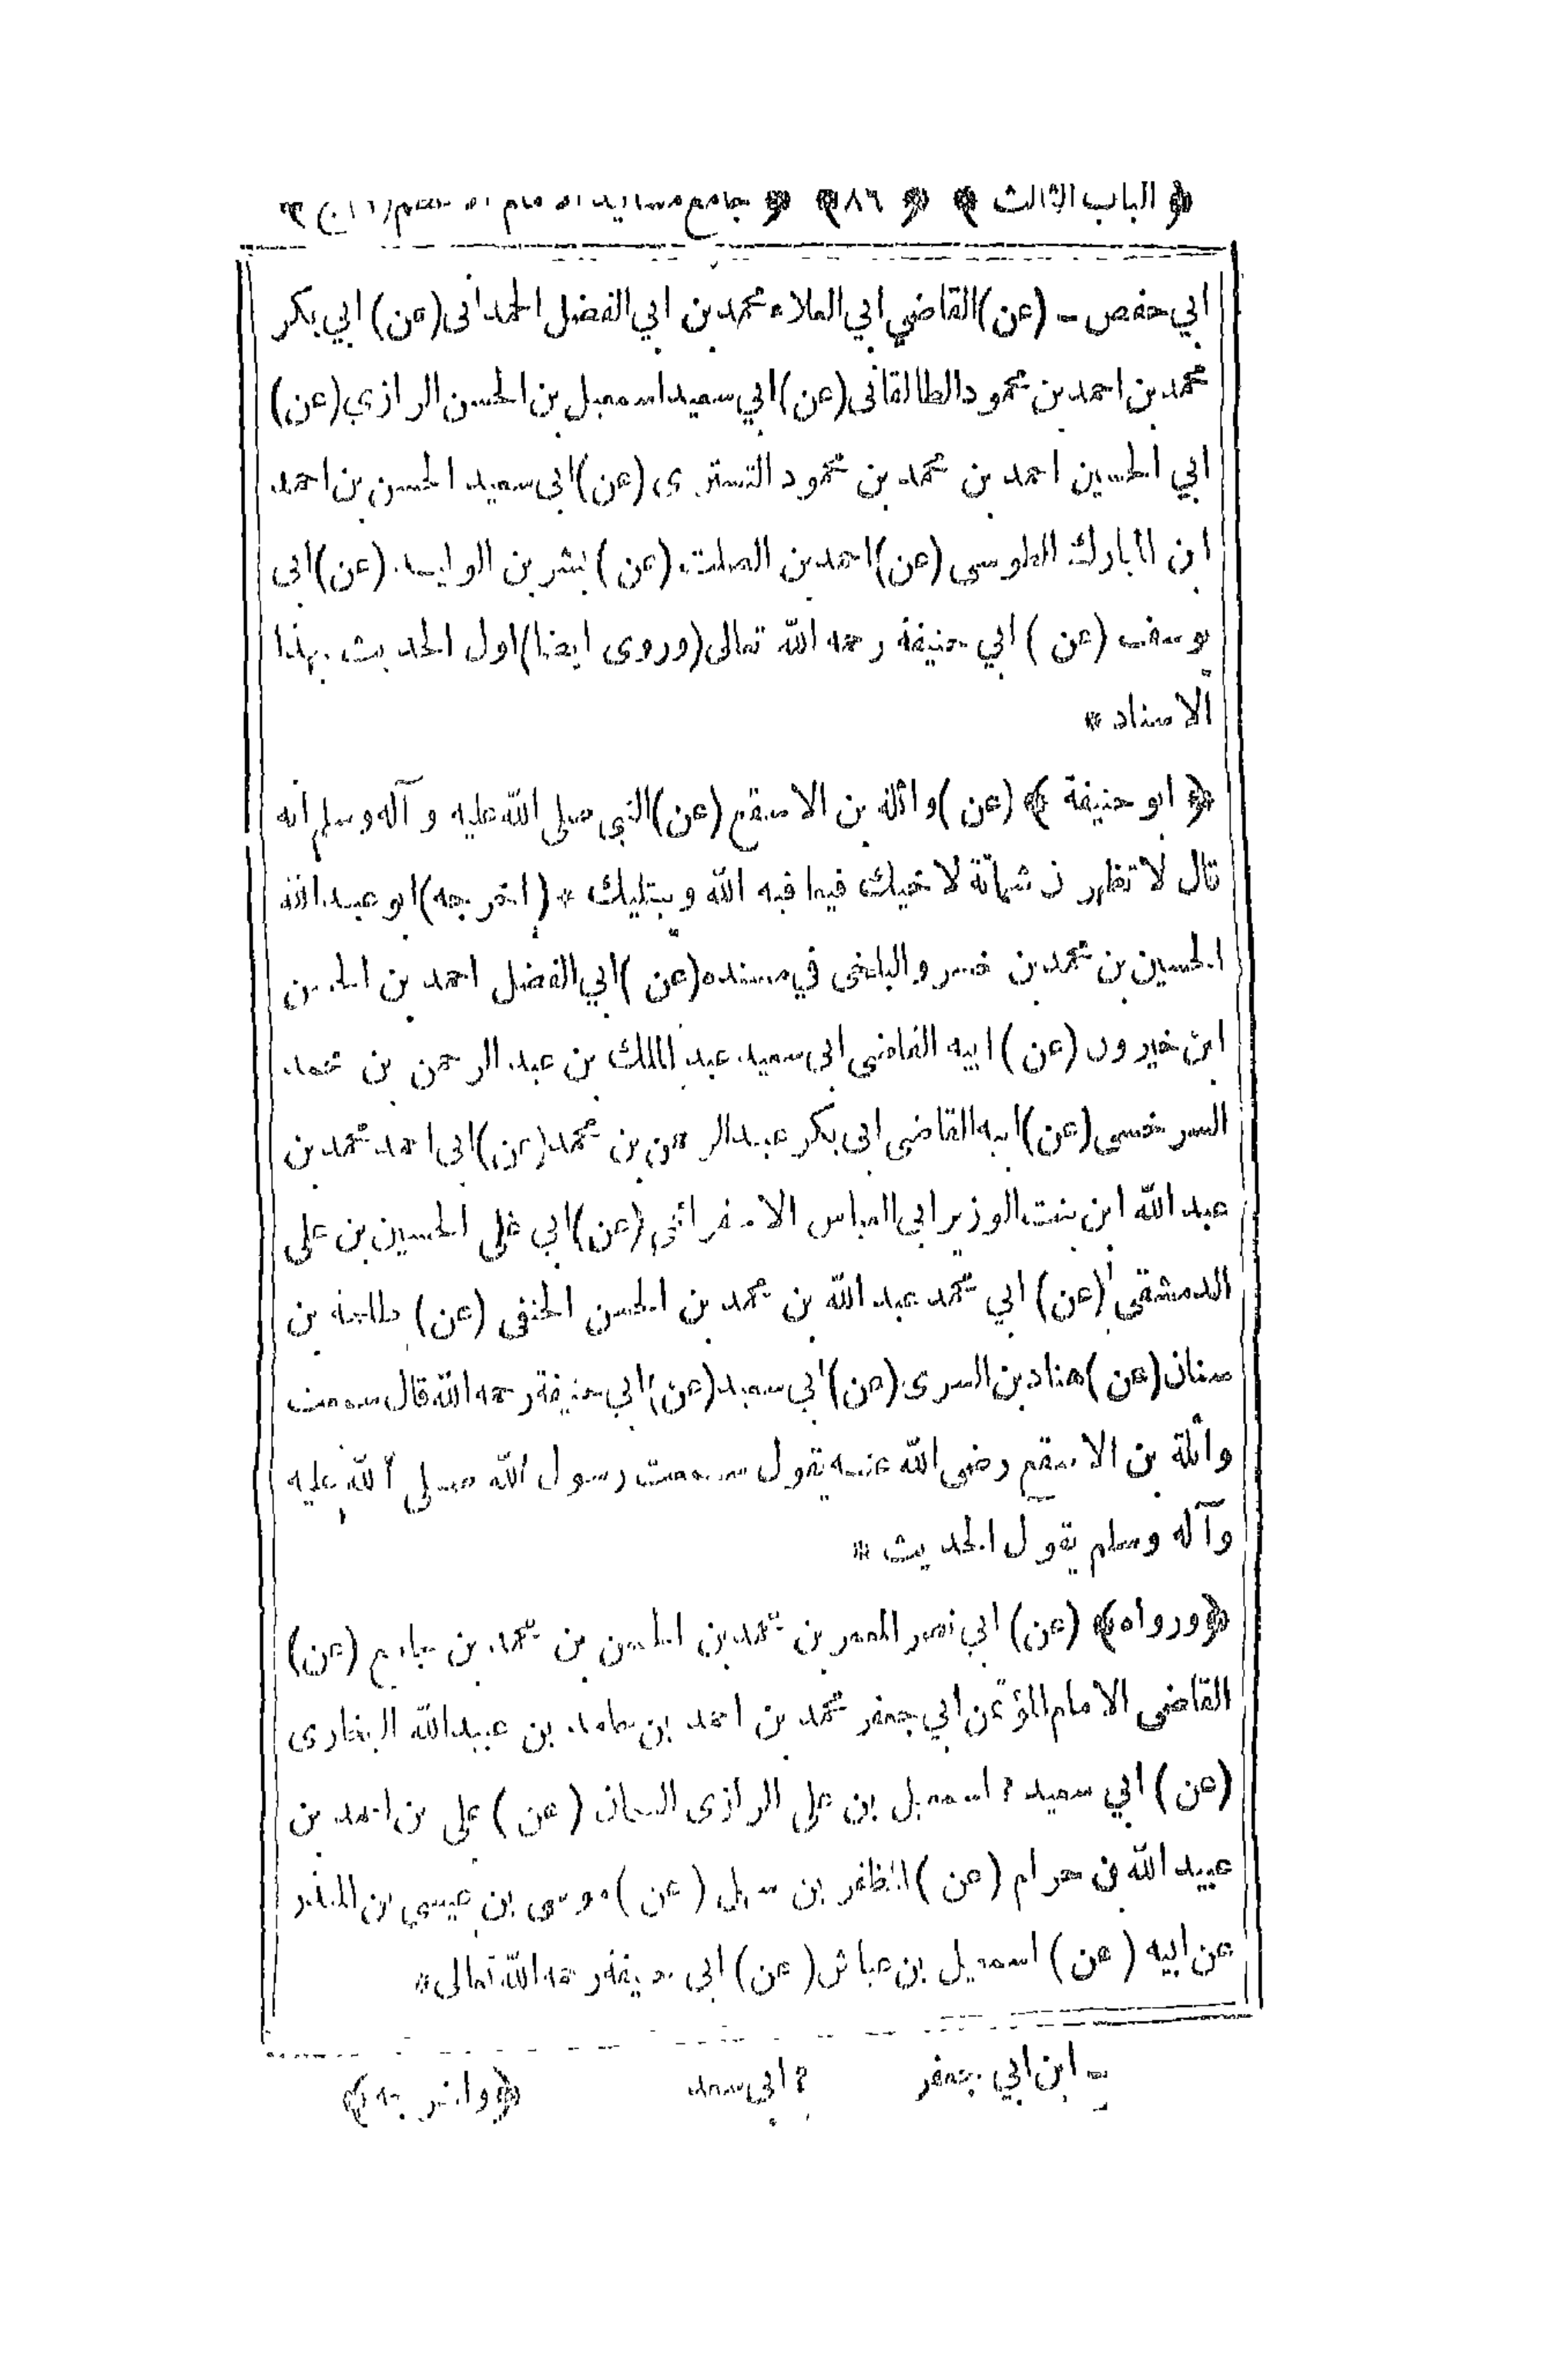 ﴿ الباب الثالث ﴾ ﴿ ٨٦ ﴾ ﴿ جامع مسانيد
ابي حفص ـ (عن) القاضي ابي العلاء محمد بن ابي الفضل الحمدانى (عن) ابي بكر
محمد بن احمد بن محمود الطالقانى (عن) ابي سعيد اسمعيل بن الحسن الرازي (عن)
ابي الحسين احمد بن محمد بن محمود التسترى (عن) ابى سعيد الحسن بن احمد
ابن المبارك الطوسى (عن) احمد بن الصلت (عن) بشر بن الوليد (عن) ابى
يوسف (عن) ابي حنيفة رحمه الله تعالى (وروى ايضا) اول الحديث بهذا
الاسناد *
﴿ ابو حنيفة ﴾ (عن) واثلة بن الاسقع (عن) النبي صلى الله عليه وآله وسلم انه
قال لا تظهرن شماتة لاخيك فيعافيه الله ويبتليك * (اخرجه) ابو عبد الله
الحسين بن محمد بن خسرو البلخى في مسنده (عن) ابي الفضل احمد بن الحسن
ابن خيرون (عن) ابيه القاضى ابى سعيد عبد الملك بن عبد الرحمن بن محمد
السرخسى (عن) ابيه القاضى ابى بكر عبد الرحمن بن محمد (عن) ابى احمد محمد بن
عبد الله ابن بنت الوزير ابى العباس الاسفرائنى (عن) ابي على الحسين بن على
الدمشقى (عن) ابي محمد عبد الله بن محمد بن الحسن الحنفى (عن) طلحة بن
سنان (عن) هناد بن السرى (عن) ابي سعيد (عن) ابي حنيفة رحمه الله قال سمعت
واثلة بن الاسقع رضى الله عنه يقول سمعت رسول الله صلى الله عليه
وآله وسلم يقول الحديث *
﴿ورواه﴾ (عن) ابي نصر المعمر بن محمد بن الحسن بن محمد بن جامع (عن)
القاضى الامام المؤتمن ابي جعفر محمد بن احمد بن حامد بن عبيد الله البخارى
(عن) ابي سعيد ? اسمعيل بن على الرازى السمان (عن) على بن احمد بن
عبيد الله بن حرام (عن) المظفر بن سهل (عن) موسى بن عيسى بن المنذر
عن ابيه (عن) اسمعيل بن عياش (عن) ابى حنيفة رحمه الله تعالى *
ـ ابن ابي جعفر ? ابى سعد ﴿واخرجه﴾